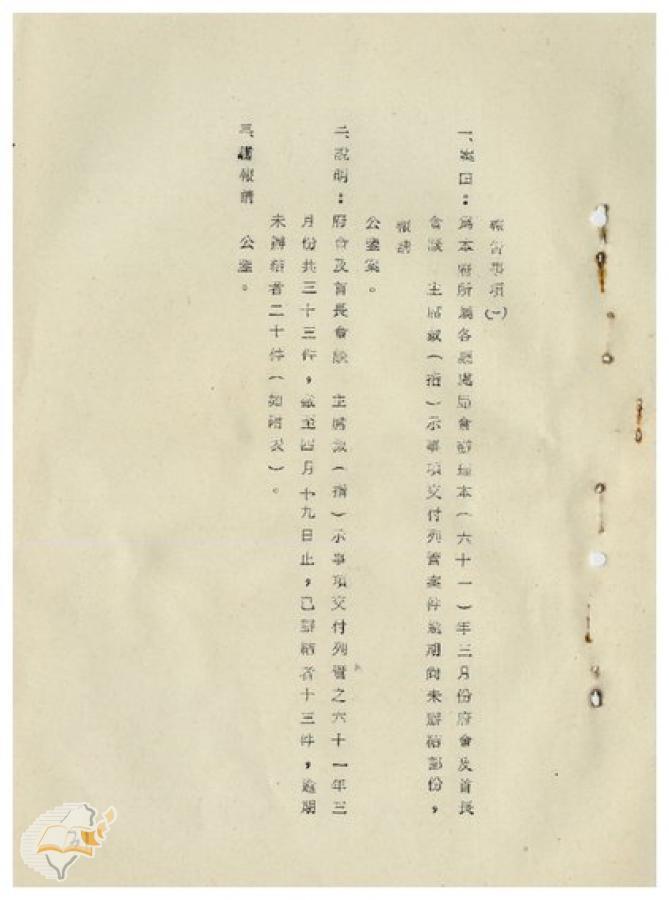 報告事項(一)
一、案由：為本府所屬各廳處局會辦理本(六十一)年三月份府會及首長
會談 主席裁(指)示事項交付列管案件逾期尚未辦結部份，
報請
公鑒案。
二、說明：府會及首長會談 主席裁(指)示事項交付列管之六十一年三
月份共三十三件，截至四月十九日止，已辦結者十三件，逾期
未辦結者二十件(如附表)。
三、謹報請 公鑒。